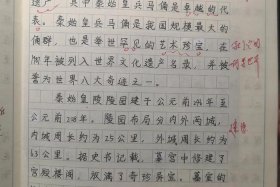 遗产，其中秦始皇兵马俑是卓越的代
表。秦始皇兵马俑是我国规模最大的
俑群，也是举世罕见的艺术珍宝，在
1987年被列入世界文化遗产名录，并被
誉为世界八大奇迹之一。
秦始皇陵陵园建于公元前246年至
公元前208年。陵园布局分内外两城，
内城周长约为2.5公里，外城周长约为
6.3公里。据史书记载，墓室中修建了
宫殿楼阁，放满了奇珍异宝。墓室的